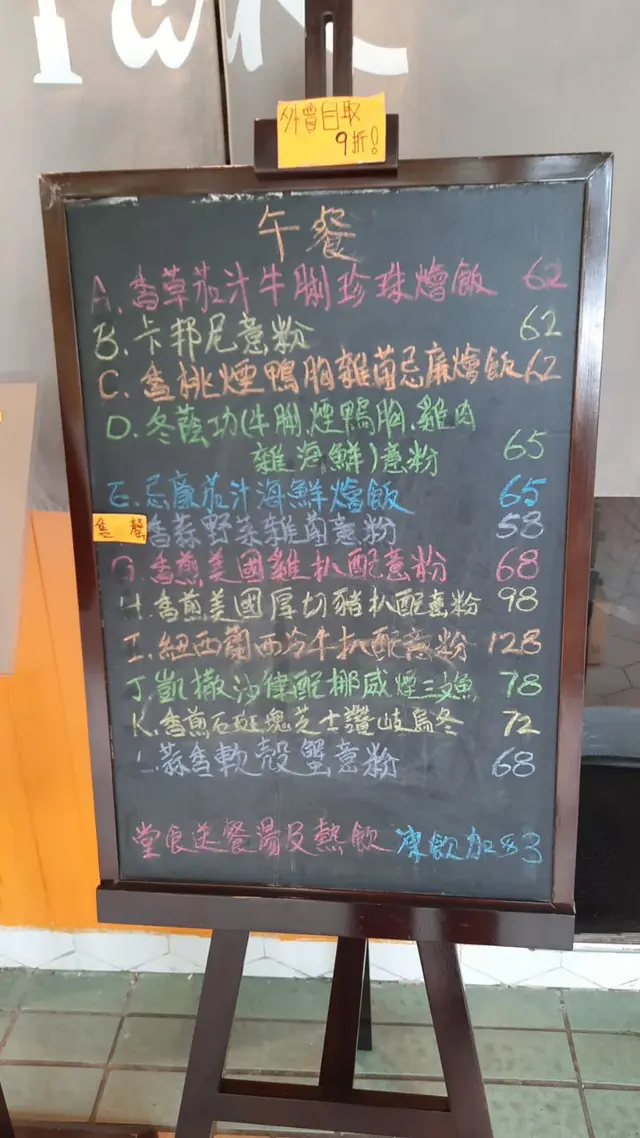 外賣自取
9折!
午餐
A. 香草茄汁牛脷珍珠燴飯 62
B. 卡邦尼意粉 62
C. 香桃煙鴨胸雜菌忌廉燴飯 62
D. 冬蔭功(牛脷.煙鴨胸.雞肉
雜海鮮)意粉 65
E. 忌廉茄汁海鮮燴飯 65
香蒜野菜雜菌意粉 58
G. 香煎美國雞扒配意粉 68
H. 香煎美國厚切豬扒配意粉 98
I. 紐西蘭西冷牛扒配意粉 128
J. 凱撒沙律配挪威煙三文魚 78
K. 香煎石斑塊芝士讚岐烏冬 72
L. 蒜香軟殼蟹意粉 68
堂食送餐湯及熱飲 凍飲加$3